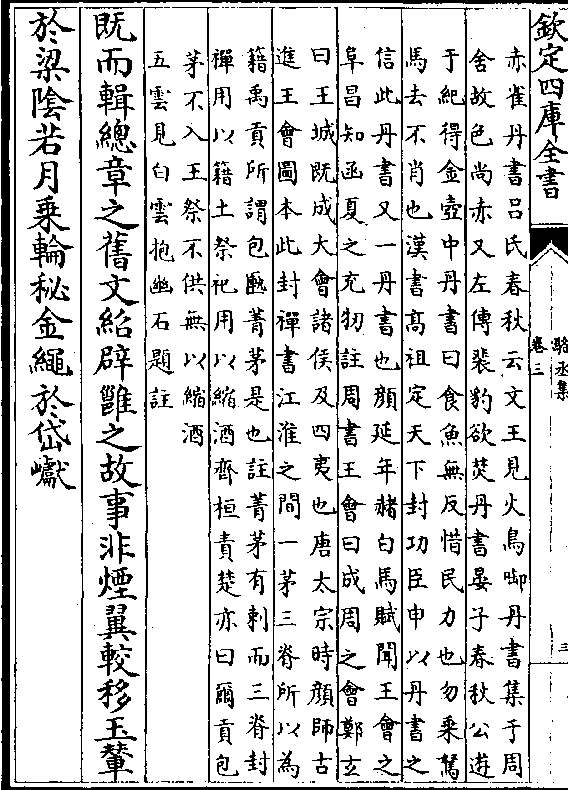 欽定四庫全書
駱丞集
卷三
三
赤雀丹書吕氏春秋云文王見火鳥啣丹書集于周
舍故色尚赤又左傳裴豹欲焚丹書晏子春秋公遊
于紀得金壺中丹書曰食魚無反惜民力也勿乘駑
馬去不肖也漢書高祖定天下封功臣申以丹書之
信此丹書又一丹書也顔延年赭白馬賦聞王會之
阜昌知函夏之充牣註周書王會曰成周之會鄭玄
曰王城既成大會諸侯及四夷也唐太宗時顔師古
進王會圖本此封禪書江淮之間一茅三脊所以為
籍禹貢所謂包匭菁茅是也註菁茅有刺而三脊封
禪用以籍土祭祀用以縮酒齊桓責楚亦曰爾貢包
茅不入王祭不供無以縮酒
五雲見白雲抱幽石題註
既而輯總章之舊文紹辟雝之故事非煙翼較移玉輦
於梁陰若月乘輪秘金繩於岱巘